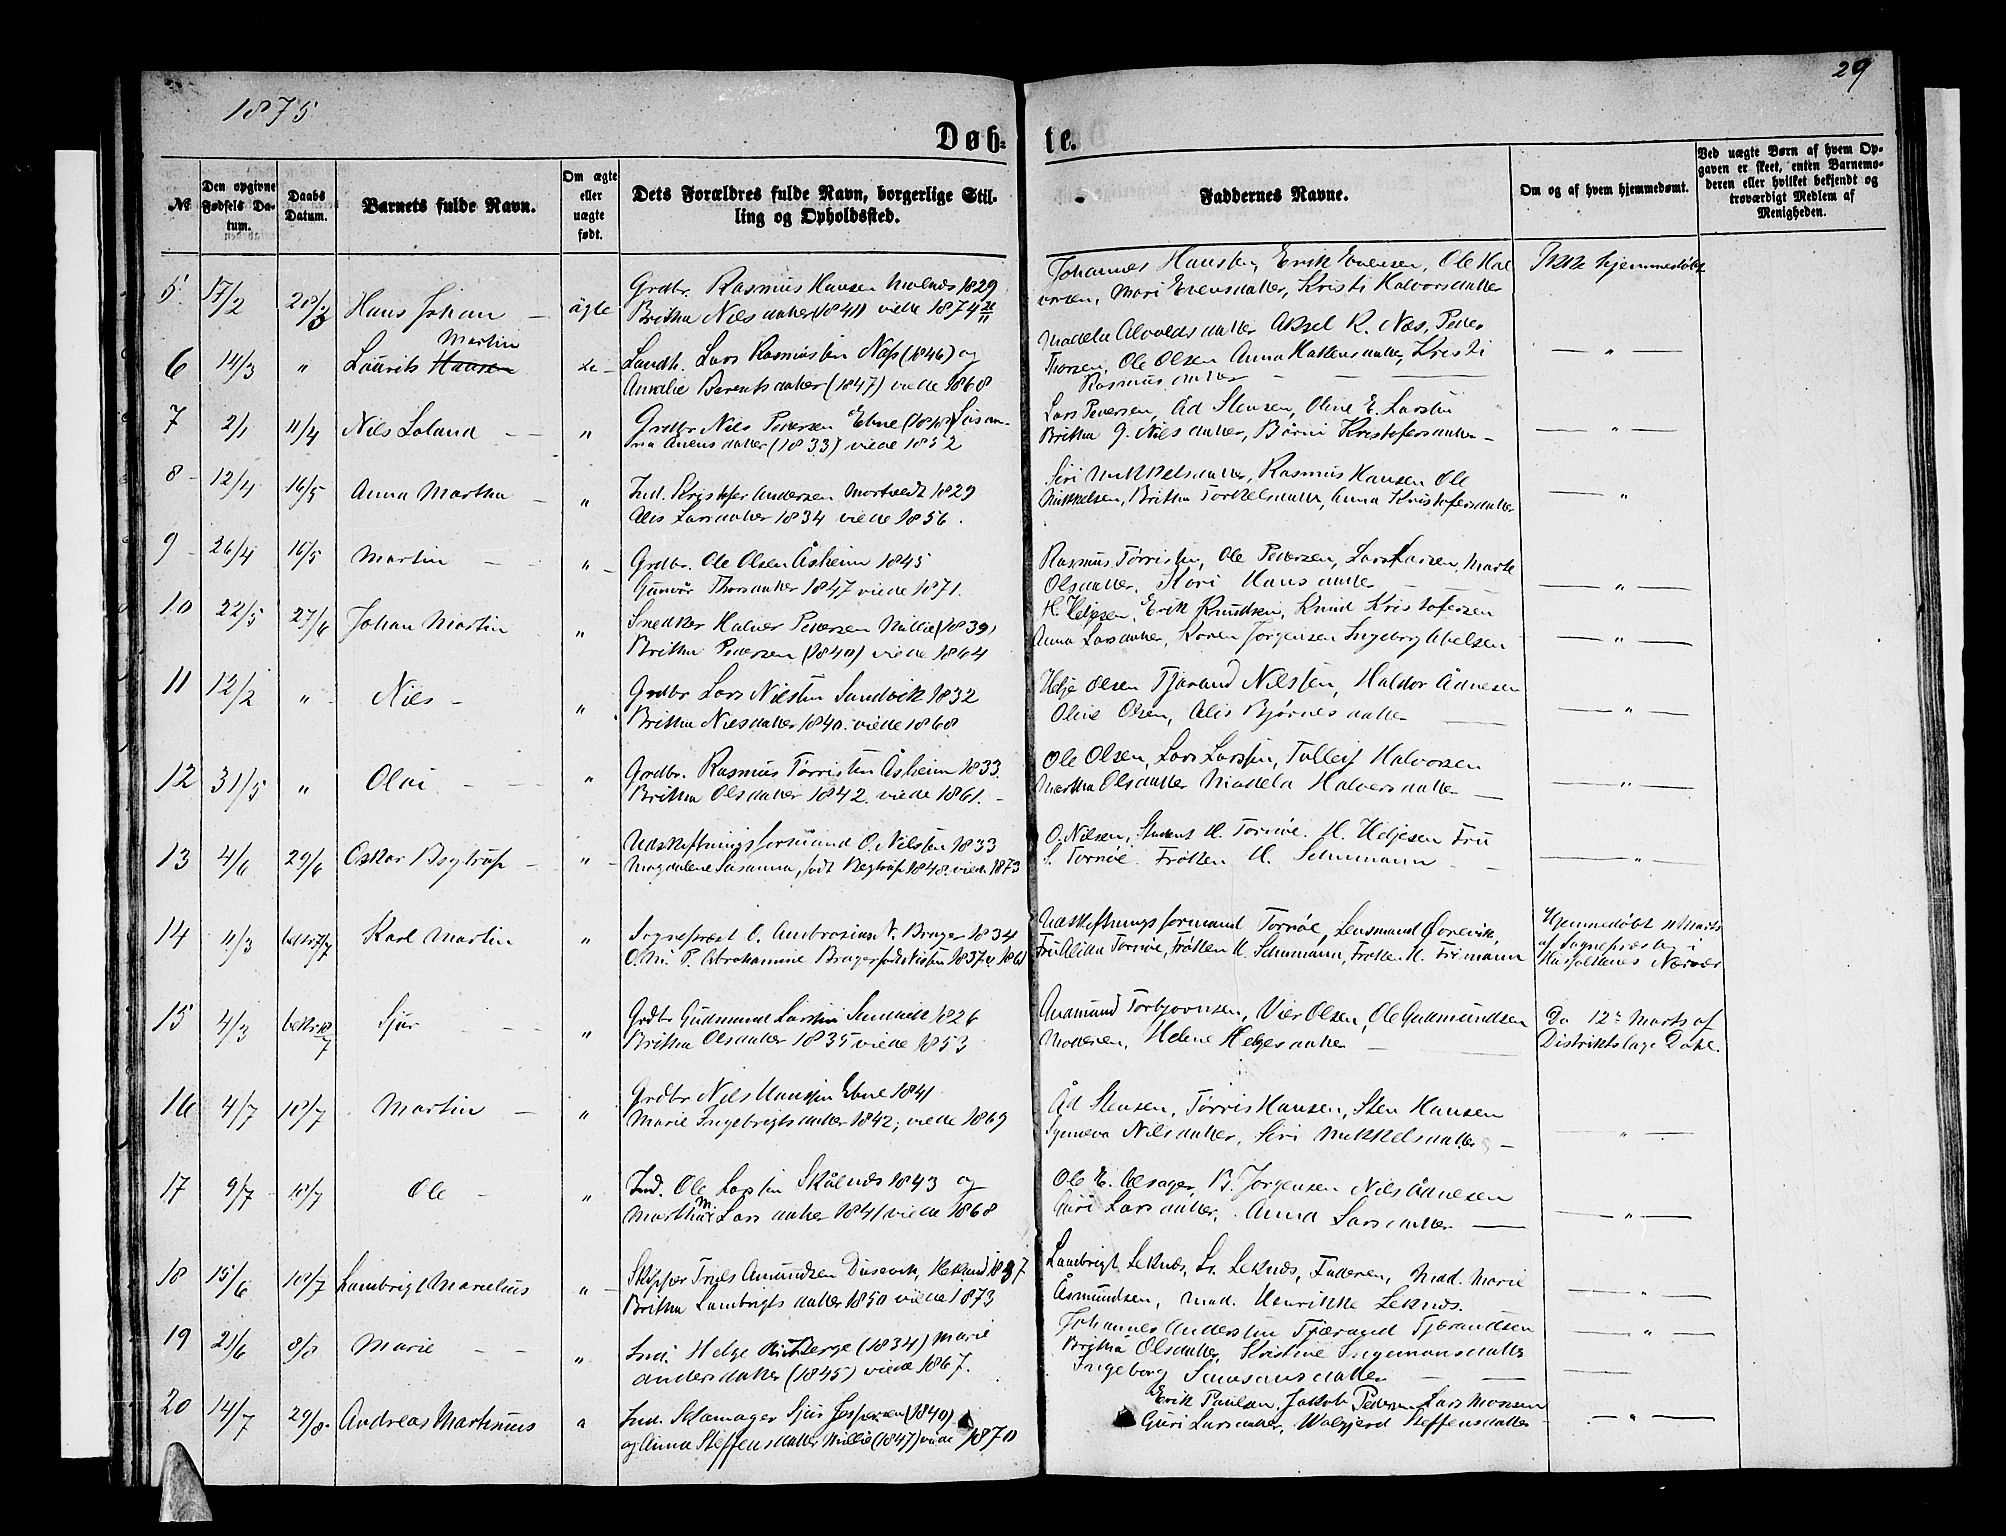 1875
29
Døb-
te.
№
Den opgivne Fødsels Datum.
Daabs Datum.
Barnets fulde Navn.
Om ægte eller uægte født.
Dets Forældres fulde Navn, borgerlige Stilling og Opholdssted.
Faddernes Navne.
Om og af hvem hjemmedømt.
Ved uægte Børn af hvem Opgaven er skeet, enten Barnemoderen eller hvilket bekjendt og troværdigt Medlem af Menigheden.
5. 17/2 28/3 Hans Johan — ägte
Grdbr. Rasmus Hansen Molnæs 1829
Britha Nilsdatter (1841) viede 1874
Johannes Hansen, Erik Evensen, Ole Hal
vorsen, Mari Evensdatter, Kristi Halvorsdatter
Ikke hjemmedøbt
6 14/3 " Laurits Martin
Landh. Lars Rasmussen Næss (1846) og
Amalie Berentsdatter (1847) viede 1868
Madela Alvaldsdatter Aksel R. Næs, Peder
Thorsen, Ole Olsen Anna Hakensdatter, Kristi
Rasmusdatter — —
— " —
7 2/1 11/4 Nils Loland — "
Grdbr Nils Pedersen Ebne Susan-
na Ånensdatter (1833) viede 1852
Lars Pedersen, Ad Stensen, Oline E. Larsen
Britha G. Nilsdatter, Børni Kristofersdatter —
— " —
8 12/4 16/5 Anna Martha — "
Ind. Kristofer Andersen Mortvedt 1829
Alis Larsdatter 1834 viede 1856.
Siri Mikkelsdatter, Rasmus Hansen Ole
Mikkelsen, Britha Torkelsdatter, Anna Kristofersdatter
— "
9 26/4 16/5 Martin — "
Grdbr. Ole Olsen Åsheim 1845
Gunvår Thorsdatter 1847 viede 1871.
Rasmus Tørrissen, Ole Pedersen, Lars Larsen, Marte
Olsdatter, Kari Hansdatter —
— " —
10 22/5 27/6 Johan Martin "
Snedker Halvor Pedersen Millie (1839)
Britha Pedersen (1840) viede 1864
H. Heljesen, Erik Knudsen, Knud Kristofersen
Anna Larsdatter, Karen Jørgensen Ingeborg Abelsen
— " —
11 12/2 " Nils — "
Grdbr Lars Nilsen Sandvik 1832
Britha Nilsdatter 1840. viede 1868
Helje Olsen Tjerand Nilssen, Haldor Ådnesen
Oline Olsen, Alis Bjørnesdatter —
— " —
12 31/5 " Olai — "
Grdbr. Rasmus Tørrissen Åsheim 1833.
Britha Olsdatter 1842. viede 1861. —
Ole Olsen, Lars Larssen, Tullef Halvorsen
Martha Olsdatter Madela Halvorsdatter —
— " —
13 4/6 29/6 Oskar Begtrup — "
Udskiftningsformand O. Nilssen 1833
Magdalene Susanna, født Begtrup 1848. viede 1873
O. Nilsen, Student H. Tornøe. H. Heljesen Fru
S. Tornøe. Frøken H. Schumann —
— " —
14 11/3 bekr 7/7 Karl Martin "
Sogneprest O. Ambrosius N. Brager 1834
O. M. P. Abrahamine Brager født Nissen 1837 v. 1861
Udskiftningsformand Tornøe, Lensmand Torevik,
Fru Alida Tornøe, Frøken H. Schumann, Frøken H. Frimann
Hjemmedøbt 11 Marts
af Sognepresten i
Husfolkenes Nærvær
15 4/3 bekr 18/7 Sjur — "
Grdbr Gudmund Larssen Sundvik 1826
Britha Olsdatter 1835 viede 1853
Audmund Torbjørnsen, Vier Olsen, Ole Gudmundsen
Moderen, Helene Helgesdatter —
Do 12te Marts af
Distriktslæge Dahl.
16 4/7 18/7 Martin — "
Grdbr Nils Hanssen Ebne 1841
Marie Ingebrigtsdatter 1842; viede 1869
Åd Stensen, Tørris Hansen, Sten Hansen
Syneva Nilsdatter, Siri Mikkelsdatter —
— " —
17 9/7 18/7 Ole — "
Ind. Ole Larssen Skålnæs 1843 og
Martha M. Larsdatter 1841 viede 1868
Ole E. Alsager, B. Jørgensen Nils Ådnesen
Guri Larsdatter, Anna Larsdatter —
— " —
18 15/6 18/7 Lambrigt Marelius "
Skipper Truls Amundsen Dusevik, Hekland 1837
Britha Lambrigtsdatter 1850 viede 1873
Lambrigt Leknæs, Ls. Leknæs, Faderen, Mad. Marie
Åsmundsen, Mad. Henrikke Leknæs.
— " —
19 21/6 8/8 Marie — — "
Ind. Helge Berge (1834) Marie
Andersdatter (1845) viede 1867.
Johannes Anderssen Tjærand Tjerandsen
Britha Olsdatter, Kristine Ingemansdatter
Ingeborg Simonsdatter — —
— " —
20 14/7 29/8 Andreas Martinus "
Ind. Skomager Sjur Jespersen (1840)
og Anna Steffensdatter Millie (1847) viede 1870
Erik Paulsen, Jakob Pedersen Lars Monsen
Guri Larsdatter, Valgjerd Steffensdatter
— " —